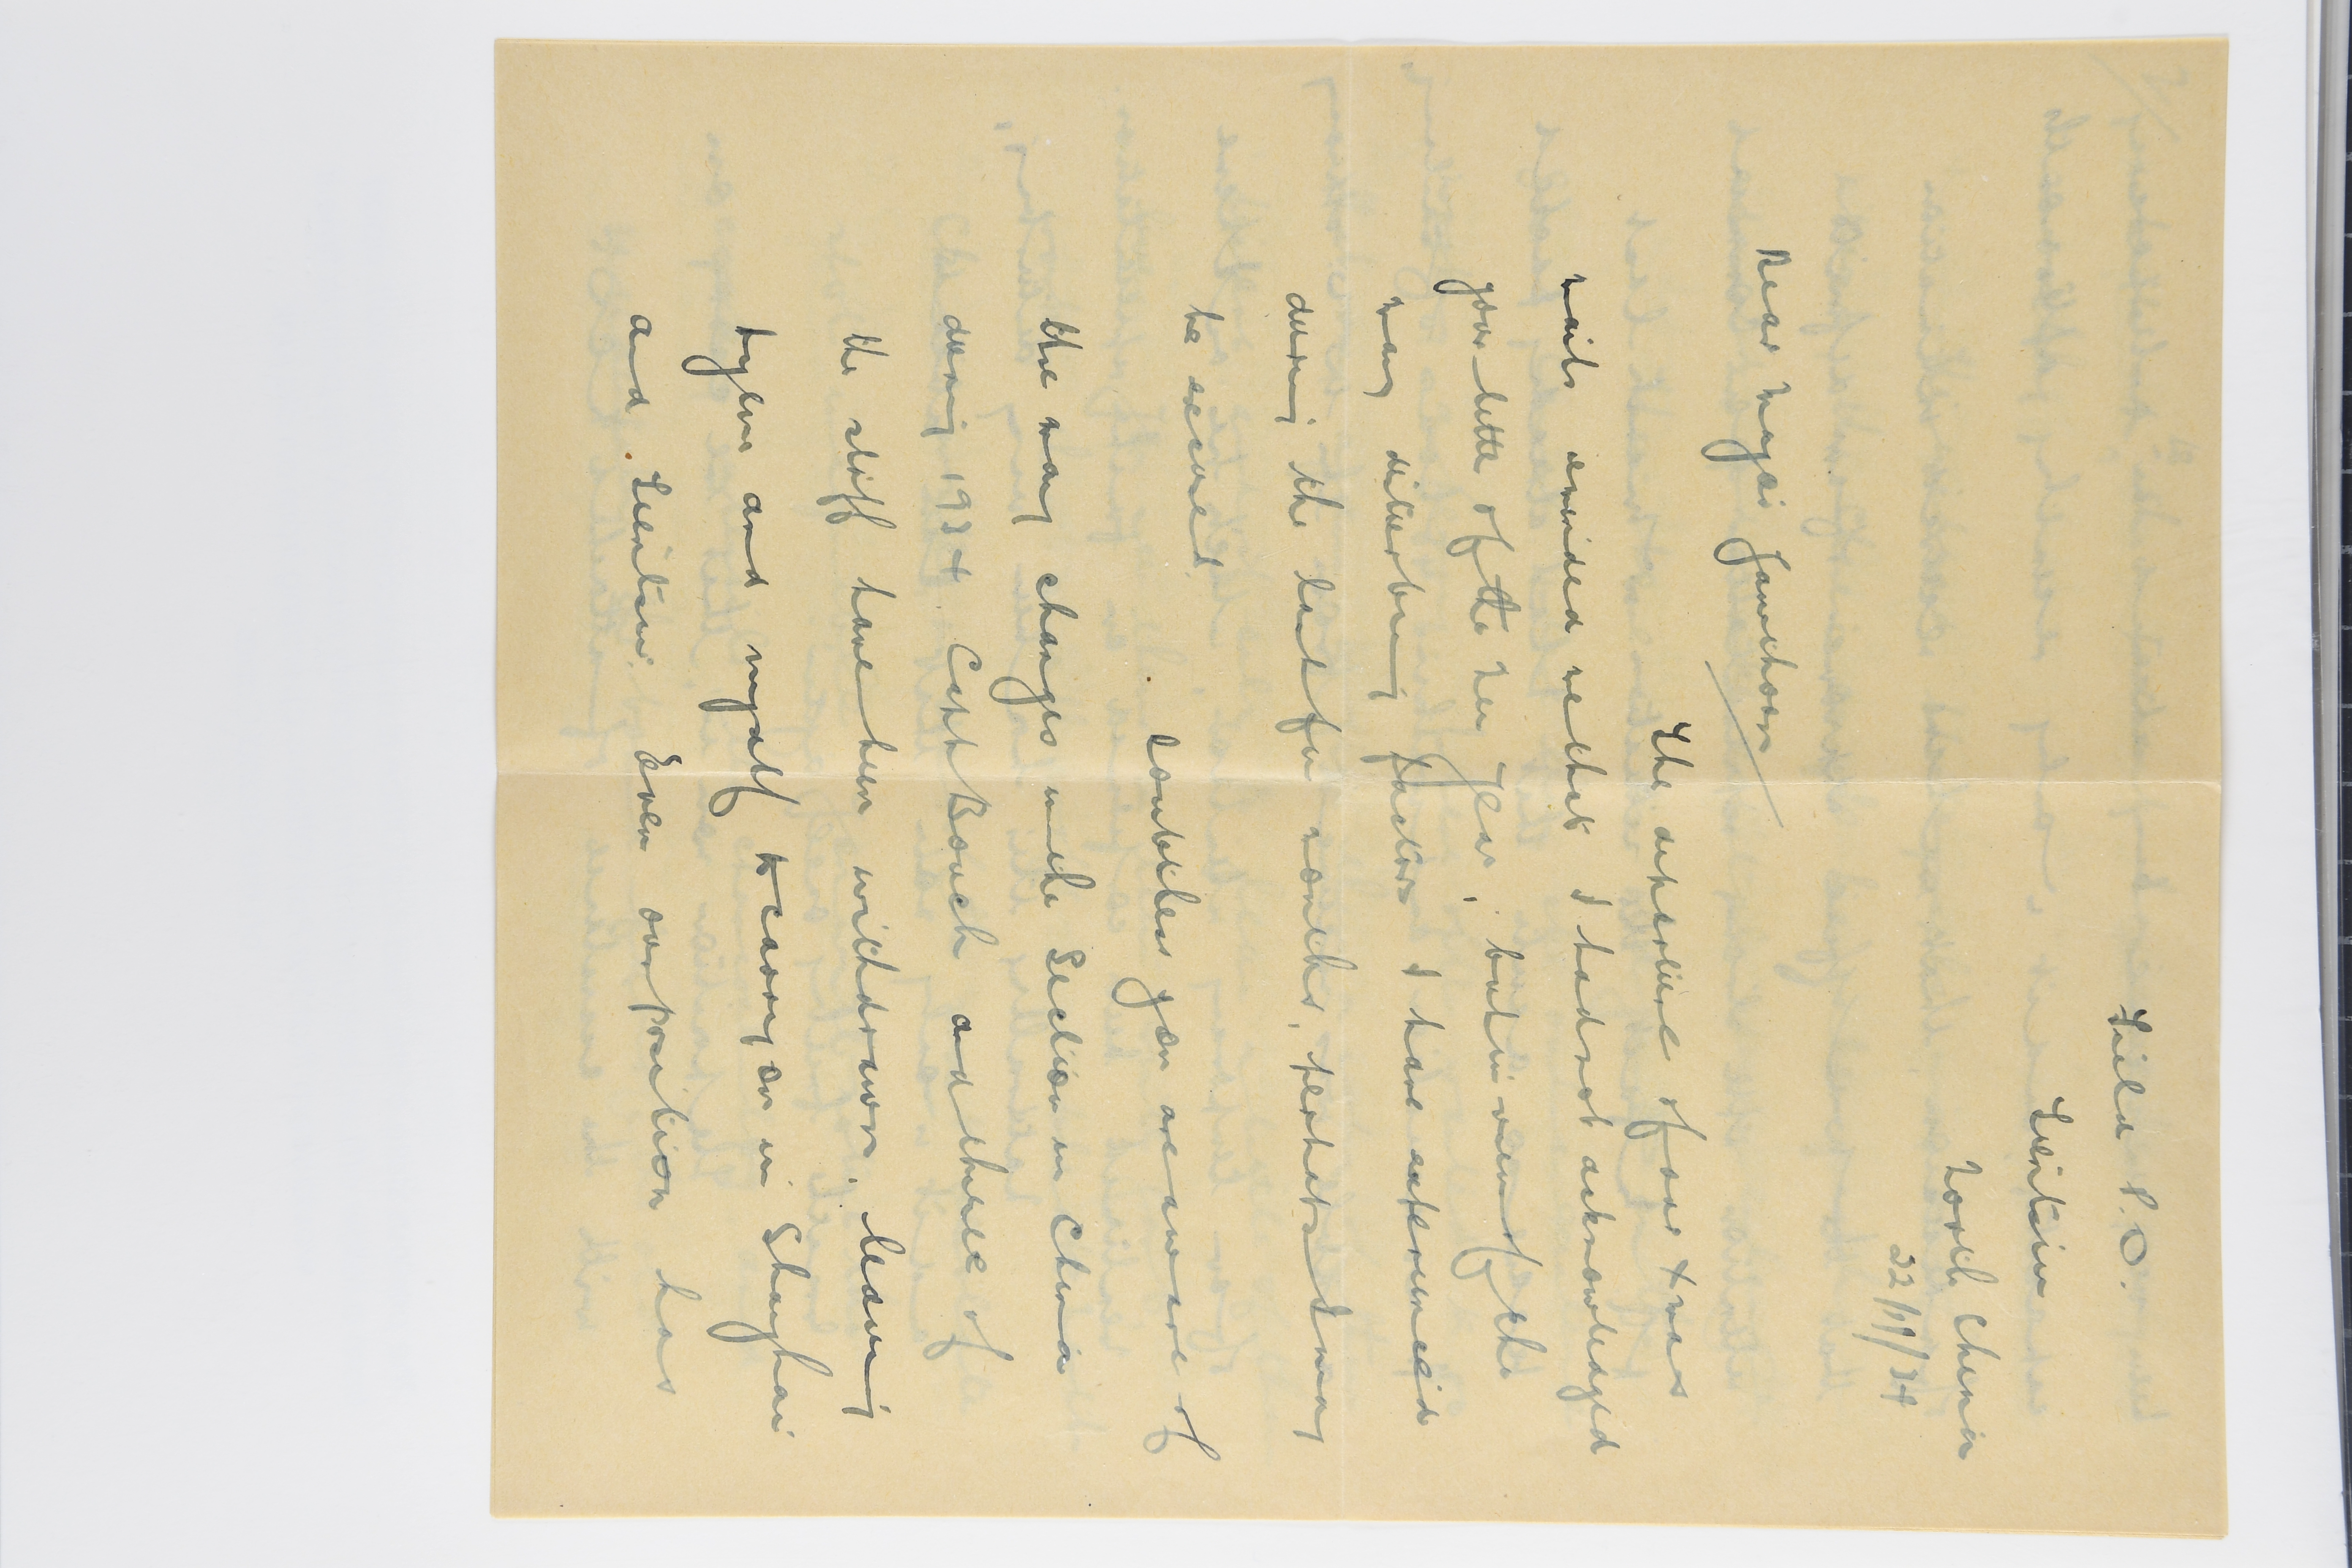 Field P.O.
Tientsin
North China
22/11/34
Dear Major Jamieson
The experience of four Xmas
mails reminded me that I had not acknowledged
your letter of the New Year, but in view of the
many disturbing factors I have experienced
during the last few months, perhaps I may
be excused.
Doubtless you are aware of
the many changes in the Section in China
during 1934. Capt Bouch and three of
the staff have been withdrawn, leaving
and myself to carry on in Shanghai
and Tientsin. Even our position has